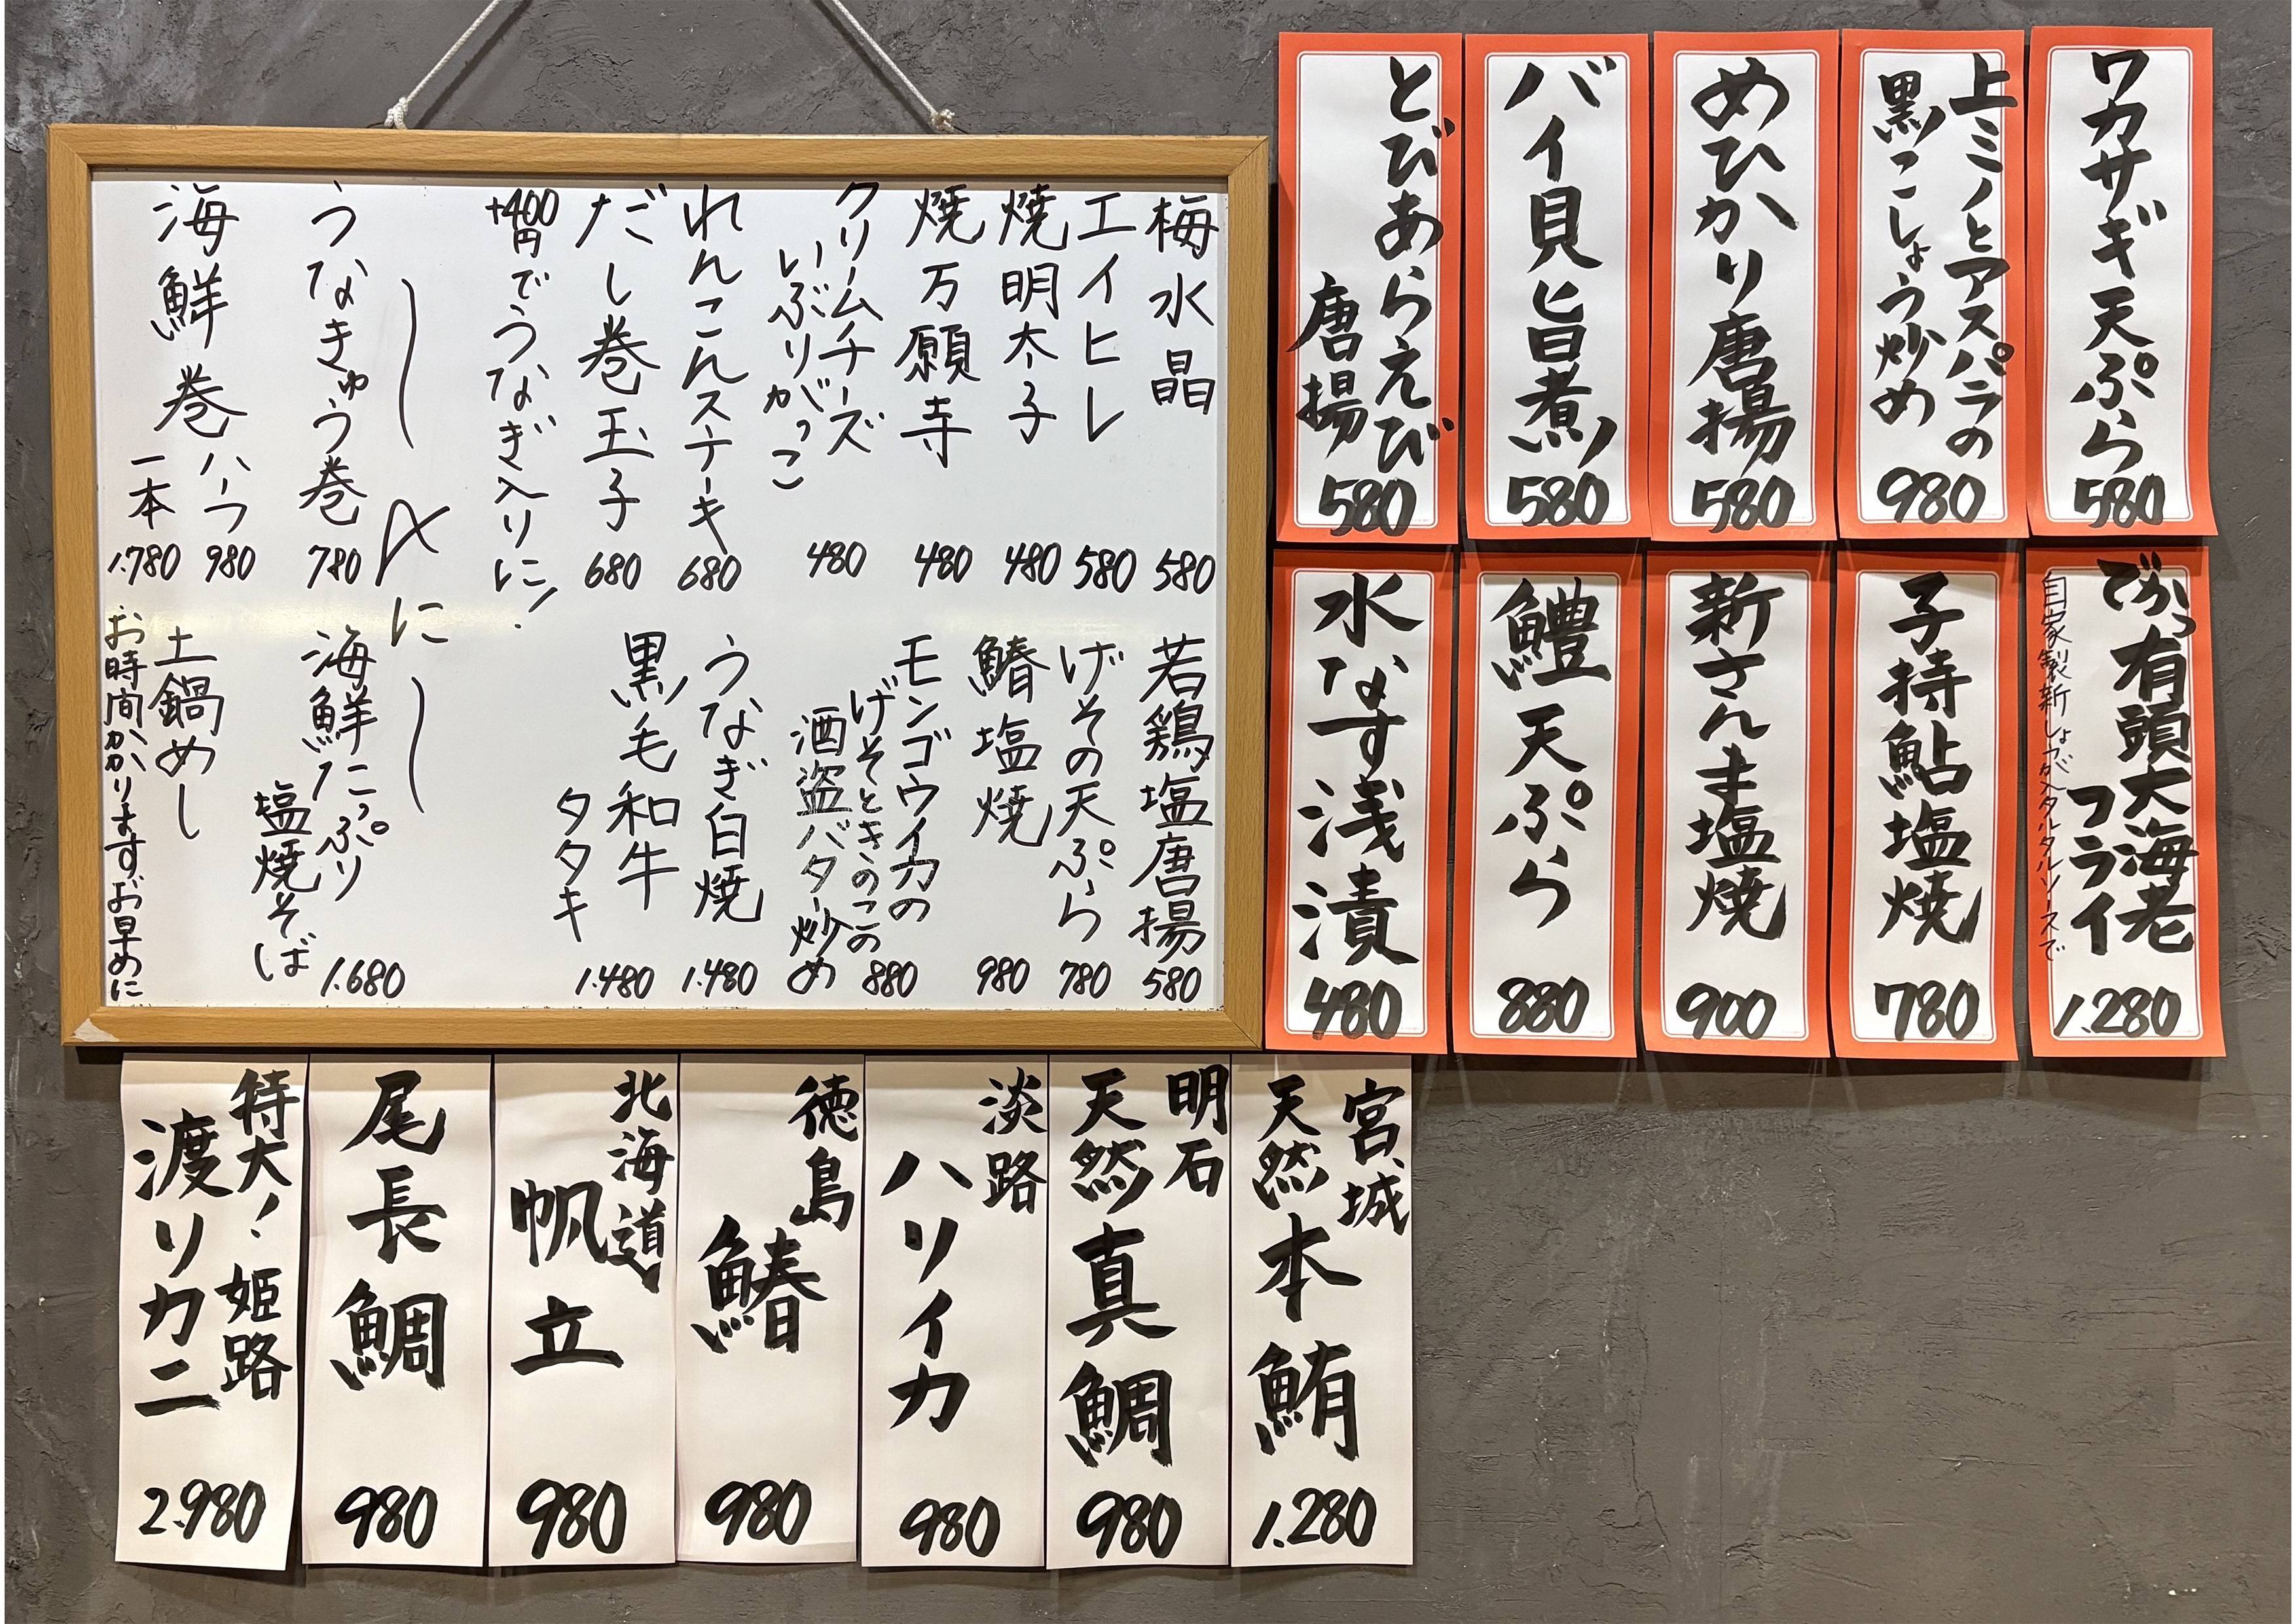 梅水晶 580
エイヒレ 580
焼明太子 480
焼万願寺 480
クリームチーズ
いぶりがっこ 480
れんこんステーキ 680
だし巻玉子 680
+400円でうなぎ入りに!
若鶏塩唐揚 580
げその天ぷら 780
鰆塩焼 980
モンゴウイカの
げそときのこの 880
酒盗バター炒め
うなぎ白焼 1.480
黒毛和牛
タタキ 1.480
〆に
うなきゅう巻 780
海鮮巻
ハーフ 980
一本 1.780
海鮮たっぷり
塩焼そば 1.680
土鍋めし
お時間かかります。お早めに
ワカサギ天ぷら
580
上ミノとアスパラの
黒こしょう炒め
980
めひかり唐揚
580
バイ貝旨煮
580
とびあらえび
唐揚
580
でかっ有頭大海老
フライ
自家製新しょうが入タルタルソースで
1.280
子持鮎塩焼
780
新さんま塩焼
900
鱧天ぷら
880
水なす浅漬
480
宮城
天然本鮪
1.280
明石
天然真鯛
980
淡路
ハリイカ
980
徳島
鰆
980
北海道
帆立
980
尾長鯛
980
特大!姫路
渡リカニ
2.980